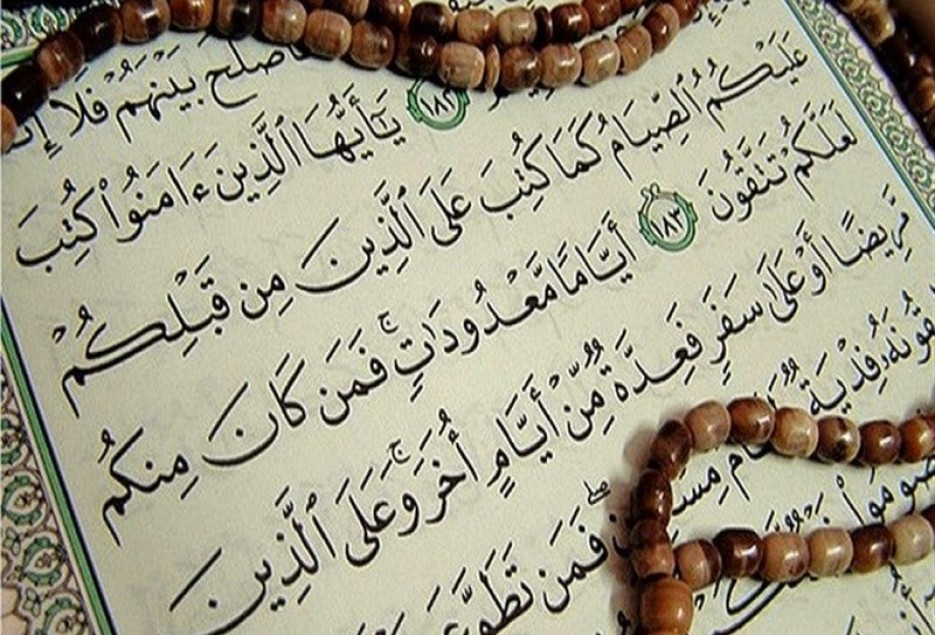 فأصلح بينهم فلا إث
عليه ١٨٢ يَٰٓأَيُّهَا ٱلَّذِينَ ءَامَنُوا۟ كُتِبَ
عَلَيْكُمُ ٱلصِّيَامُ كَمَا كُتِبَ عَلَى ٱلَّذِينَ مِن قَبْلِكُمْ
لَعَلَّكُمْ تَتَّقُونَ ١٨٣ أَيَّامًا مَّعْدُودَٰتٍ ۚ فَمَن كَانَ مِنكُم
مَّرِيضًا أَوْ عَلَىٰ سَفَرٍ فَعِدَّةٌ مِّنْ أَيَّامٍ أُخَرَ ۚ وَعَلَى ٱلَّذِينَ
يقُونَهُۥ فِدْيَةٌ طَعَامُ مِسْكِينٍ ۖ فَمَن تَطَوَّعَ
صُومُوا۟